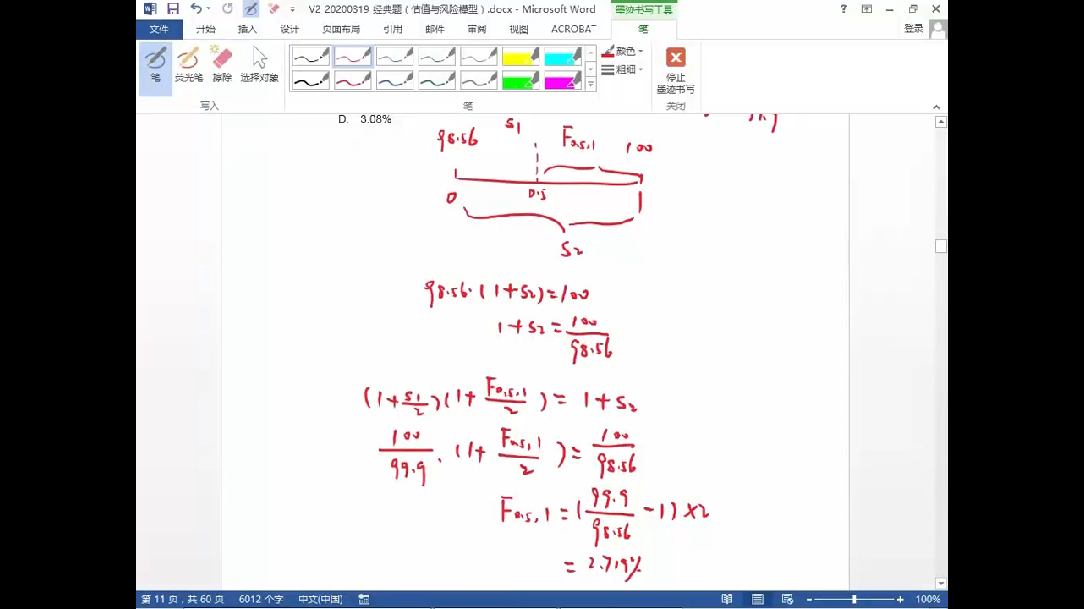 V2 20200319 经典题（估值与风险模型）.docx - Microsoft Word
墨迹书写工具
文件 开始 插入 设计 页面布局 引用 邮件 审阅 视图 ACROBAT 笔 登录
笔 荧光笔 擦除 选择对象
颜色
粗细
停止
墨迹书写
写入 笔 关闭
D. 3.08%
98.56 S1 F0.5,1 100
0 0.5 1
S2
98.56·(1+S2)=100
1+S2=100/98.56
(1+S1/2)(1+F0.5,1/2)=1+S2
100/99.9·(1+F0.5,1/2)=100/98.56
F0.5,1=(99.9/98.56-1)×2
=2.719%
第 11 页，共 60 页 6012 个字 中文(中国) 100%